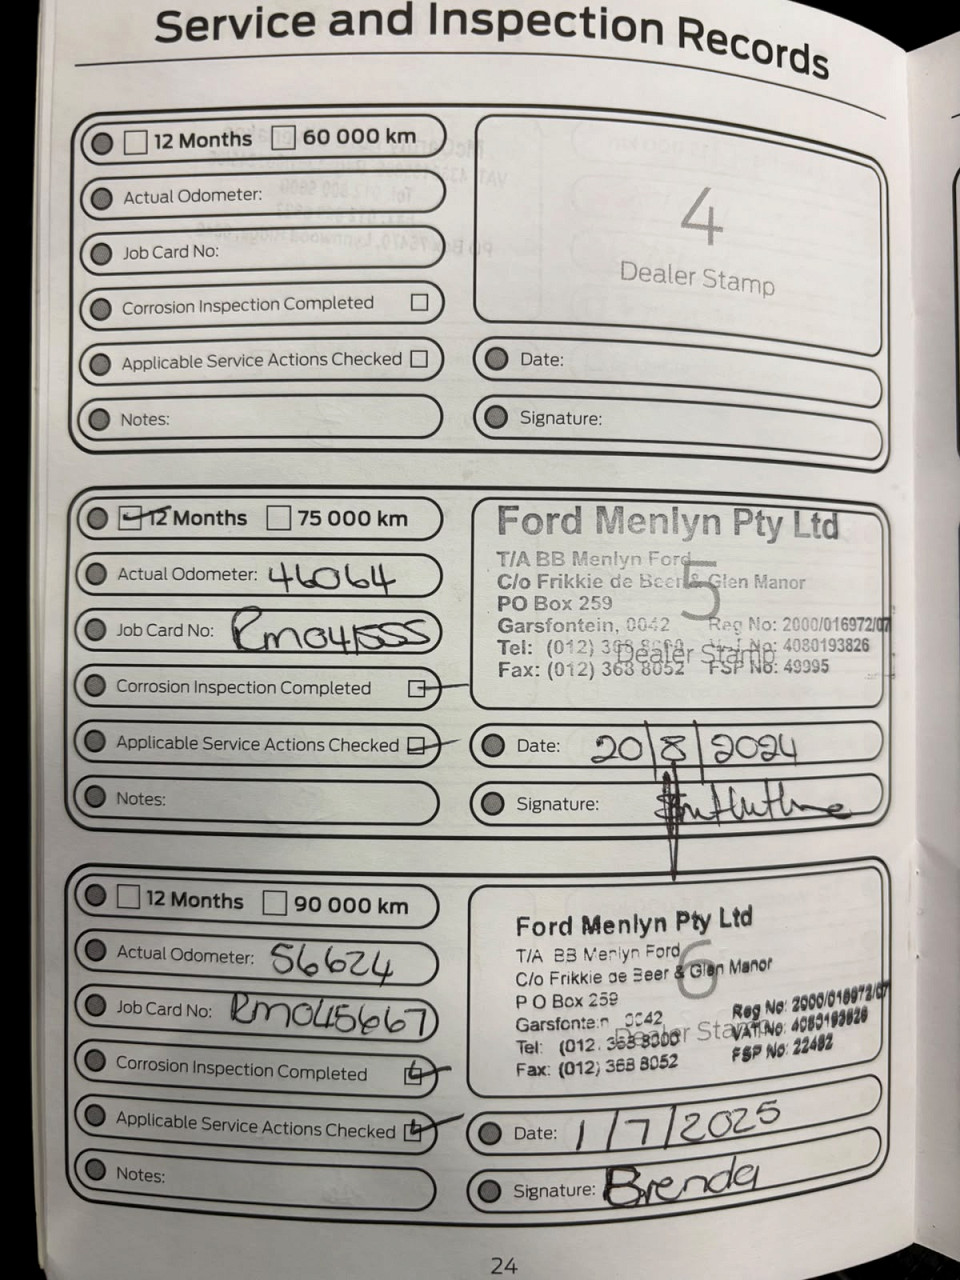 Service and Inspection Records
12 Months 60 000 km
Actual Odometer:
Job Card No:
Corrosion Inspection Completed
Applicable Service Actions Checked
Notes:
4
Dealer Stamp
Date:
Signature:
12 Months 75 000 km
Actual Odometer: 46064
Job Card No: RM041555
Corrosion Inspection Completed
Applicable Service Actions Checked
Notes:
Ford Menlyn Pty Ltd
T/A BB Menlyn Ford
5
C/o Frikkie de Beer & Glen Manor
PO Box 259
Garsfontein, 0042 Reg No: 2000/016972/07
Tel: (012) No: 4080193826
Dealer Stamp
Fax: (012) 368 8052 FSP No: 49995
Date: 20/8/2024
Signature:
12 Months 90 000 km
Actual Odometer: 56624
Job Card No: RM045667
Corrosion Inspection Completed
Applicable Service Actions Checked
Notes:
Ford Menlyn Pty Ltd
T/A BB Menlyn Ford
6
C/o Frikkie de Beer & Glen Manor
P O Box 259
Garsfontein 0042 Reg No: 2000/016972/07
Dealer Stamp
Tel: (012) 368 8000 VAT No: 4080193826
Fax: (012) 368 8052 FSP No: 22482
Date: 1/7/2025
Signature: Brenda
24